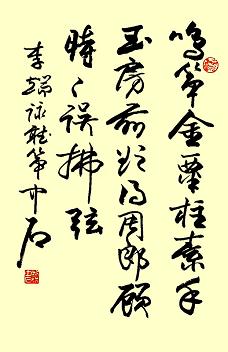 鸣筝金粟柱素手
玉房前欲得周郎顾
时々误拂弦
李端咏听筝 中石